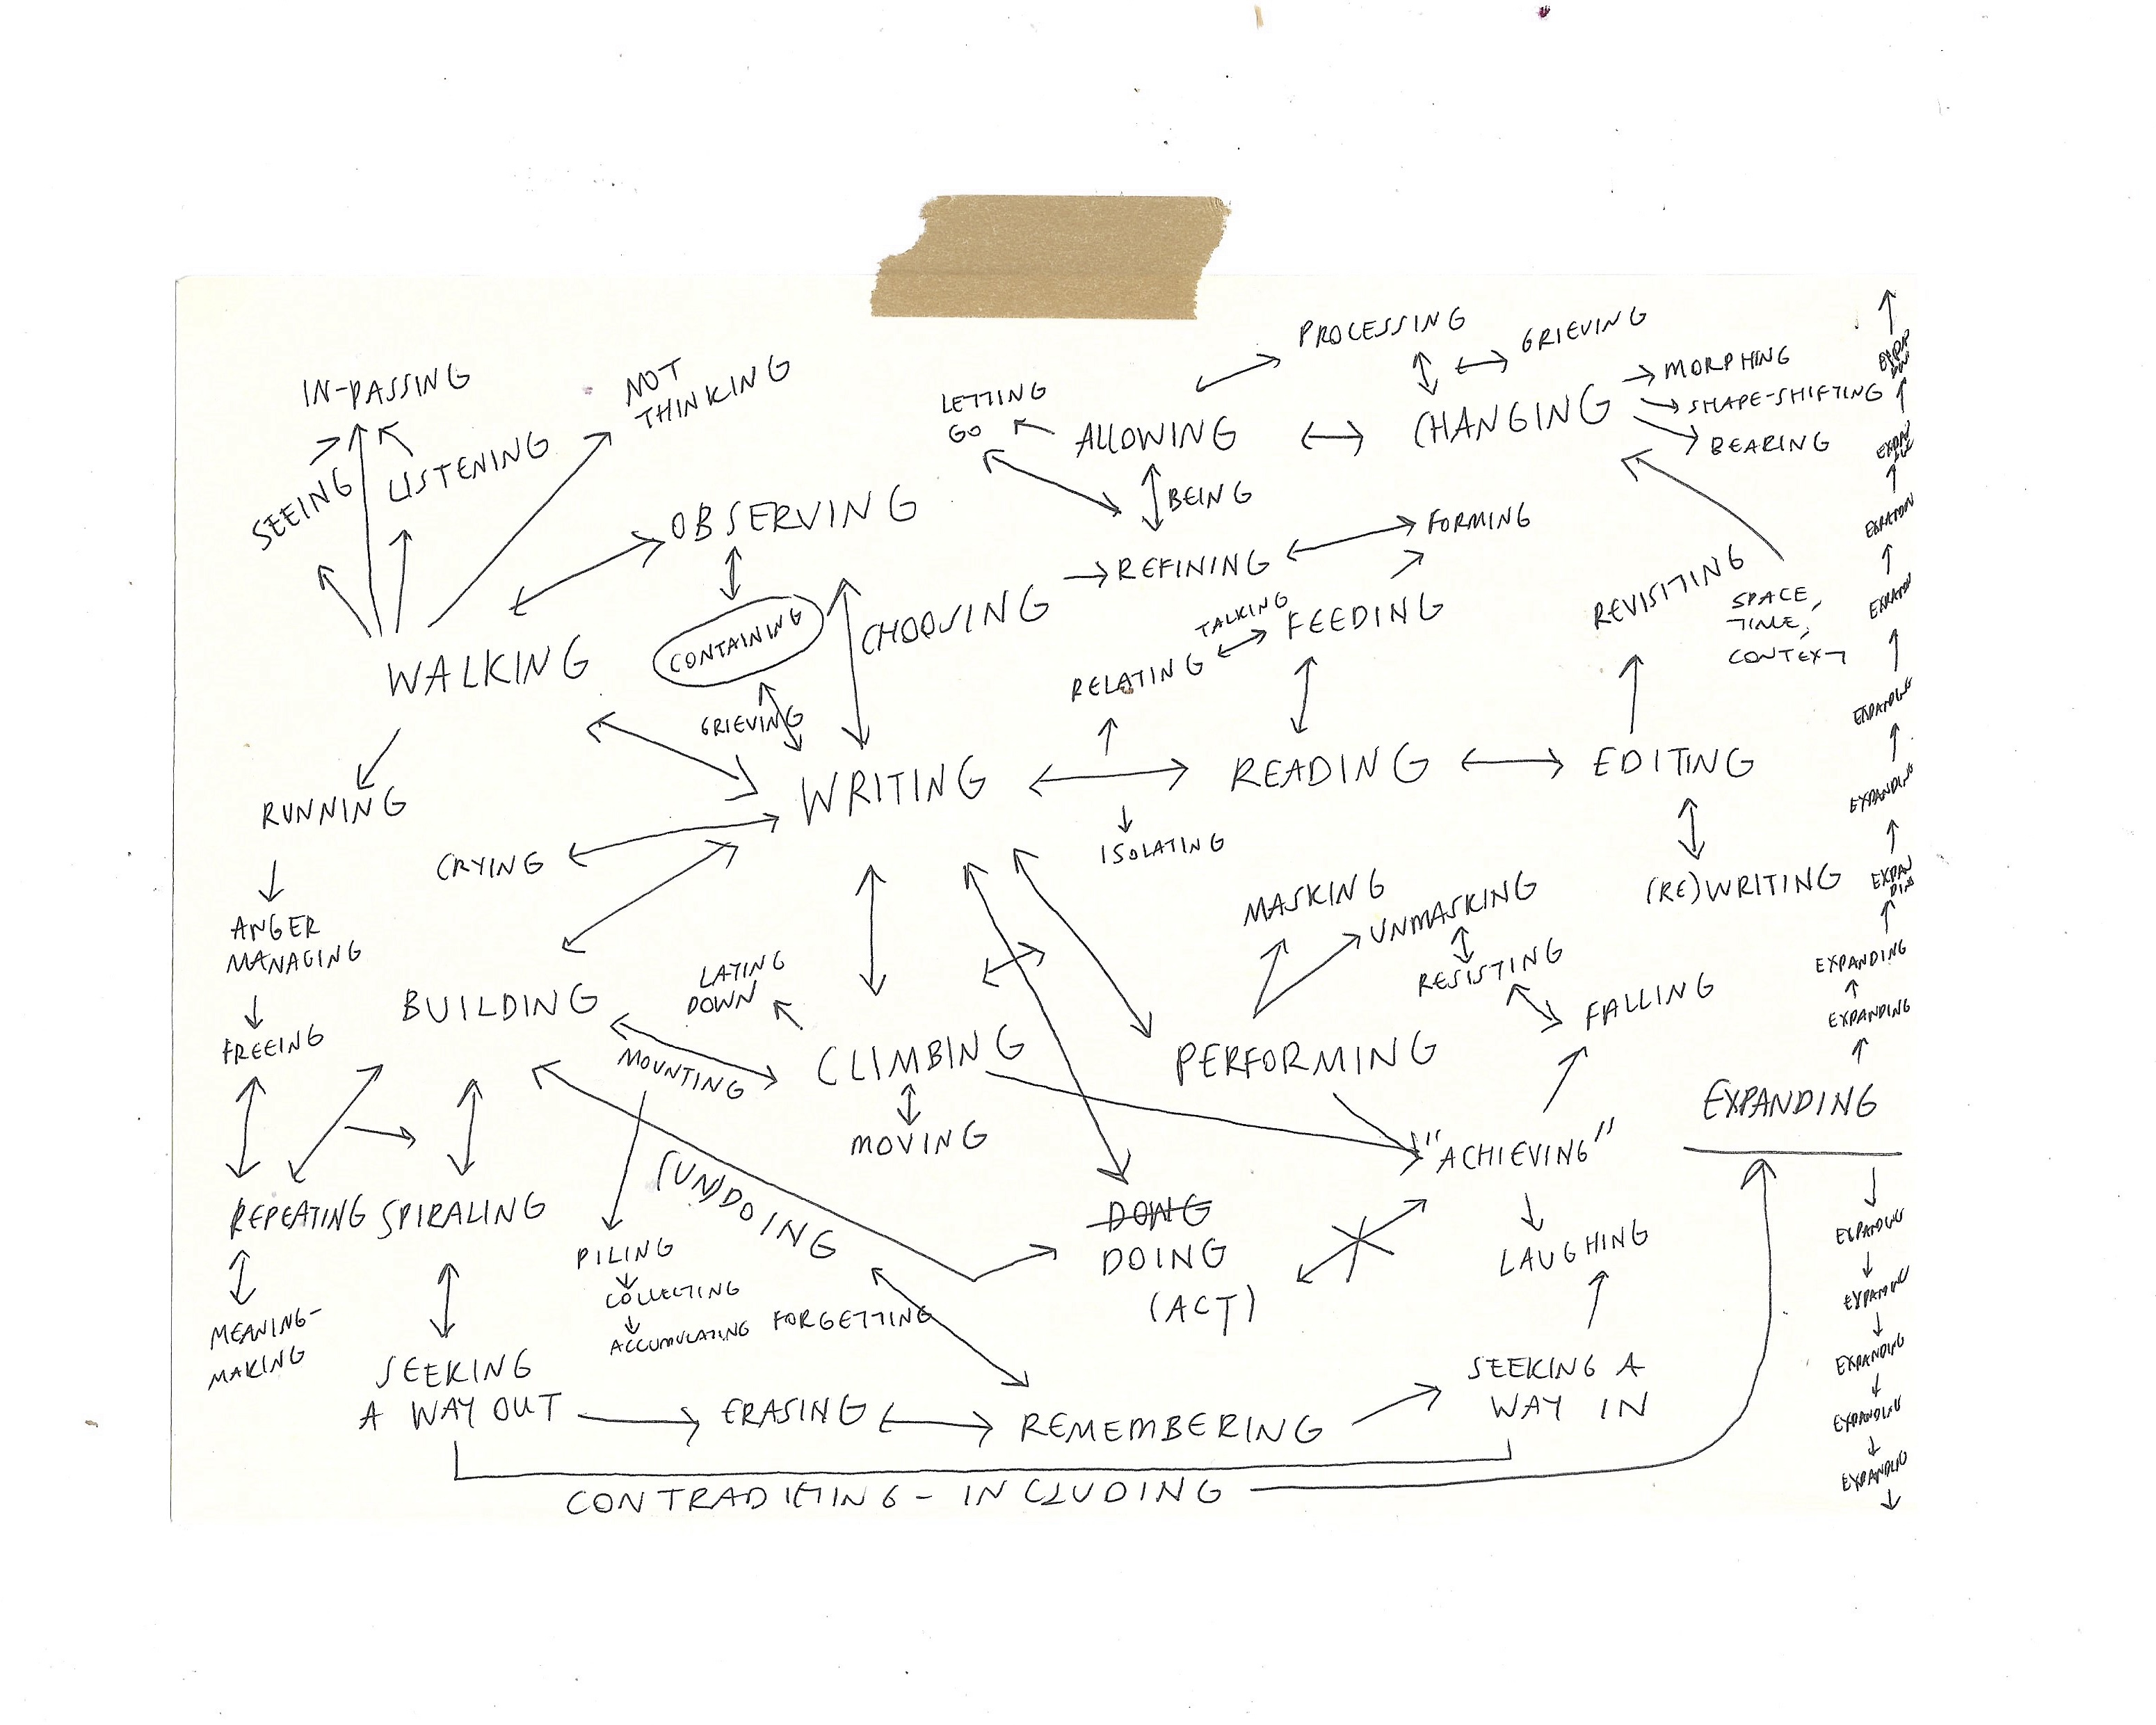 PROCESSING
GRIEVING
IN-PASSING
NOT
THINKING
LETTING
GO
ALLOWING
CHANGING
MORPHING
SHAPE-SHIFTING
BEARING
SEEING
LISTENING
OBSERVING
BEING
REFINING
FORMING
CHOOSING
TALKING
FEEDING
REVISITING
SPACE,
TIME,
CONTEXT
WALKING
CONTAINING
RELATING
GRIEVING
WRITING
READING
EDITING
RUNNING
CRYING
ISOLATING
(RE)WRITING
MASKING
UNMASKING
ANGER
MANAGING
LAYING
DOWN
RESISTING
FALLING
BUILDING
FREEING
MOUNTING
CLIMBING
PERFORMING
MOVING
"ACHIEVING"
REPEATING
SPIRALING
(UN)DOING
DOING
DOING
(ACT)
PILING
COLLECTING
ACCUMULATING
FORGETTING
LAUGHING
MEANING-
MAKING
SEEKING
A WAY OUT
ERASING
REMEMBERING
SEEKING A
WAY IN
CONTRADICTING - INCLUDING
EXPANDING
EXPANDING
EXPANDING
EXPAN
DING
EXPANDING
EXPANDING
EXPANDING
EXPANDING
EXPANDING
EXPANDING
EXPANDING